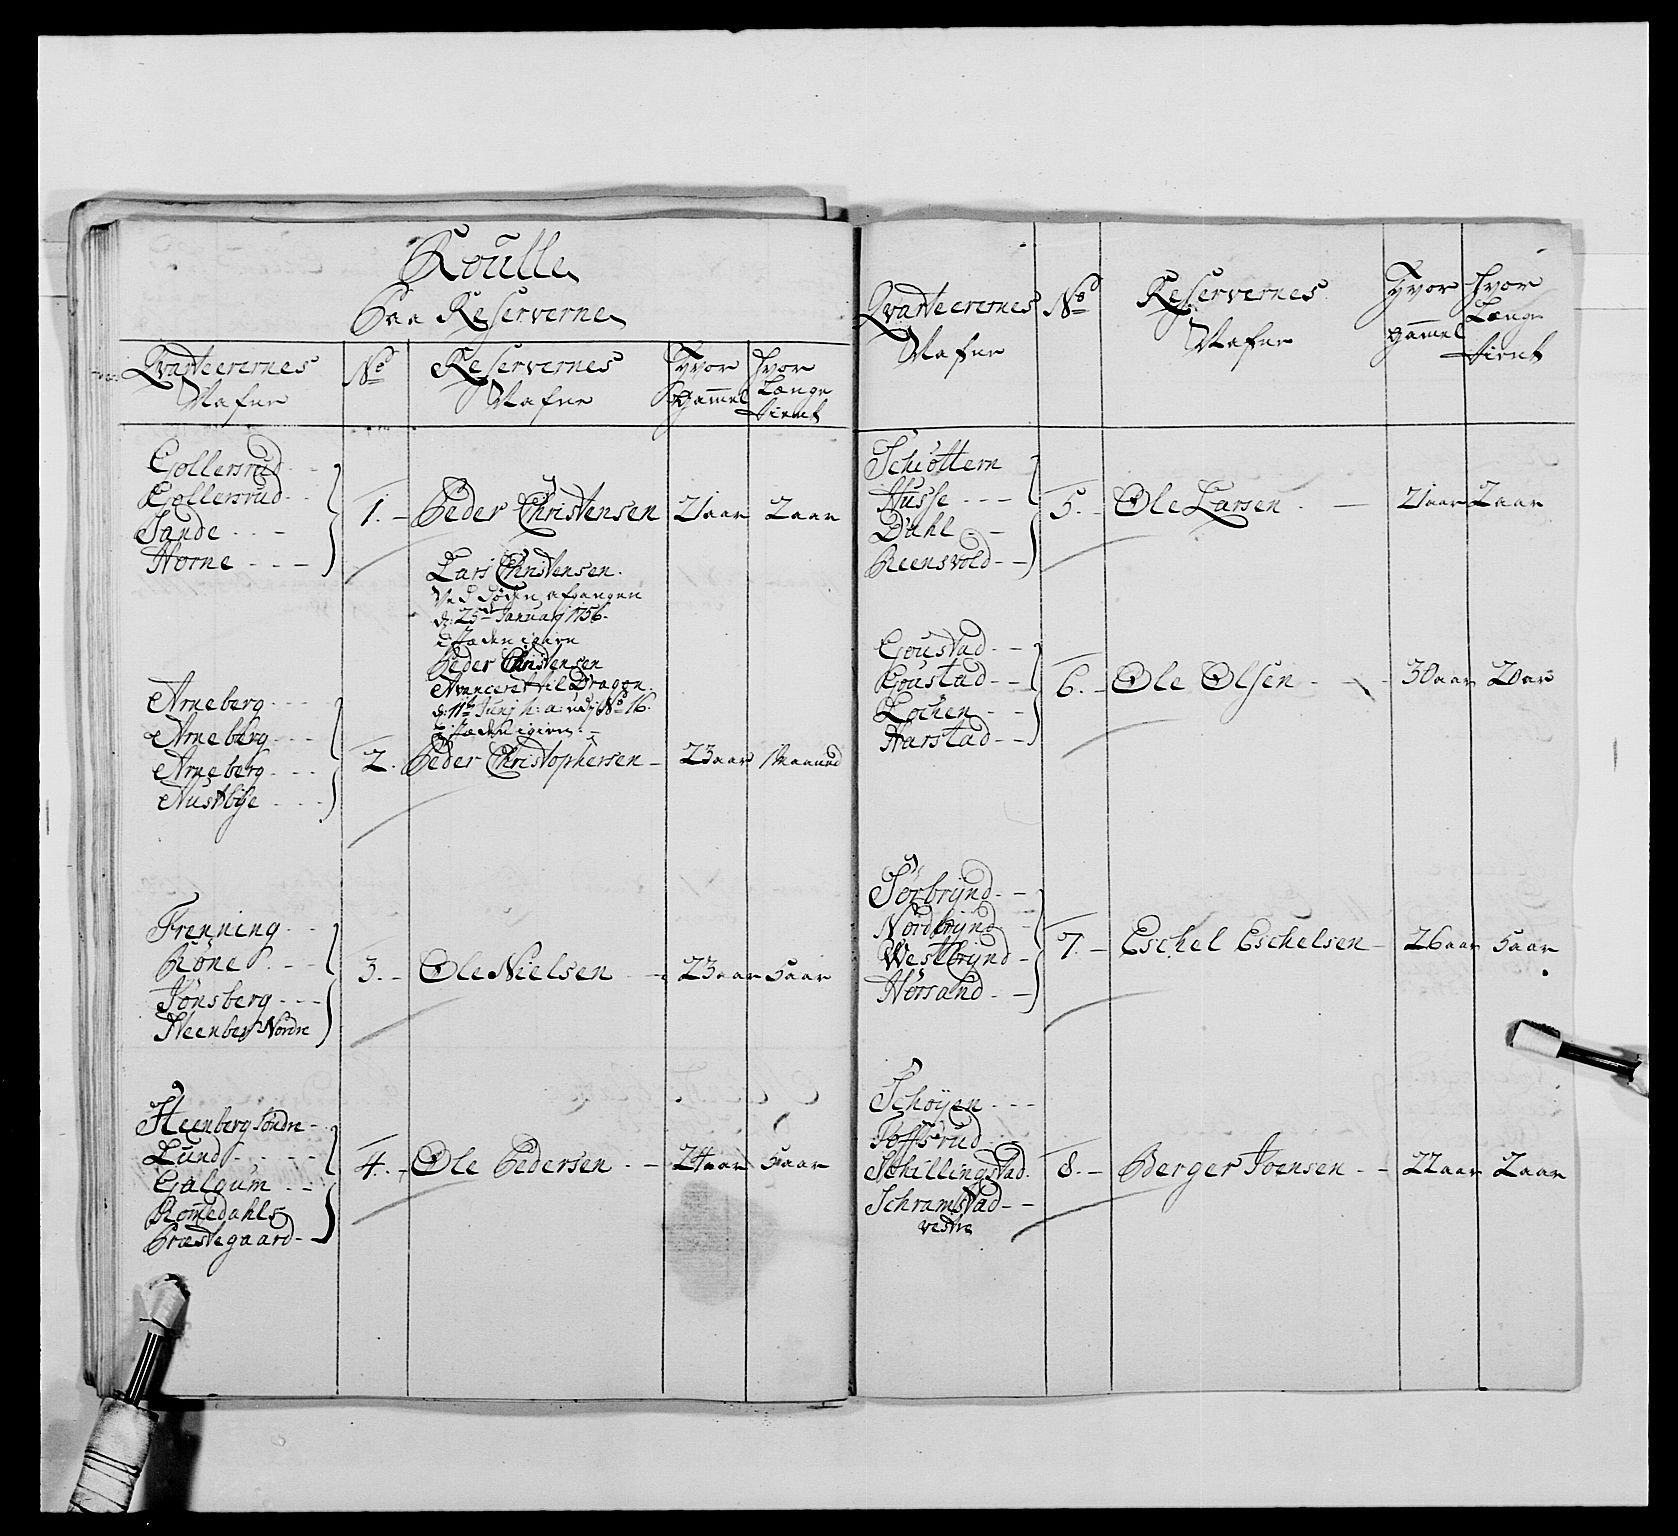 Roulle
Paa Reserverne
Qvarteerernes Nafne
No
Reservernes Nafne
Hvor Gammel
Hvor Længe tient
Gollersrud
Gollersrud
Sande
Horne
1. Peder Christensen 21 aar 2 aar
Lars Christensen
Ved Døden afgangen
d: 25de Januarj 1756.
i stæden igien
Peder Christensen
Avanceret til Dragon
d: 11te Junj h: a: ved No 16.
i stæden igien
Arneberg
Arneberg
Arneberg
Nustbye
2. Peder Christophersen 23 aar 1 Maaned
Frenning
Röne
Jönsberg
Steenber Nordre
3. Ole Nielsen 23 aar 5 aar
Steenberg Söndre
Lund
Galgum
Romedahls
Præstegaard
4. Ole Pedersen 24 aar 5 aar
Qvarteerernes Nafne
No
Reservernes Nafne
Hvor gammel
Hvor Længe tient
Schiöttern
Husse
Dahl
Reensvold
5. Ole Larsen 21 aar 2 aar
Goustad
Goustad
Lochen
Harstad
6. Ole Olsen 30 aar 20 ar
Sörbrynd
Nordbrynd
Westbrynd
Hörsand
7. Eschel Eschelsen 26 aar 5 aar
Schöyen
Toffsrud
Schillingstad
Schramstad
vestre
8. Berger Joensen 22 aar 2 aar